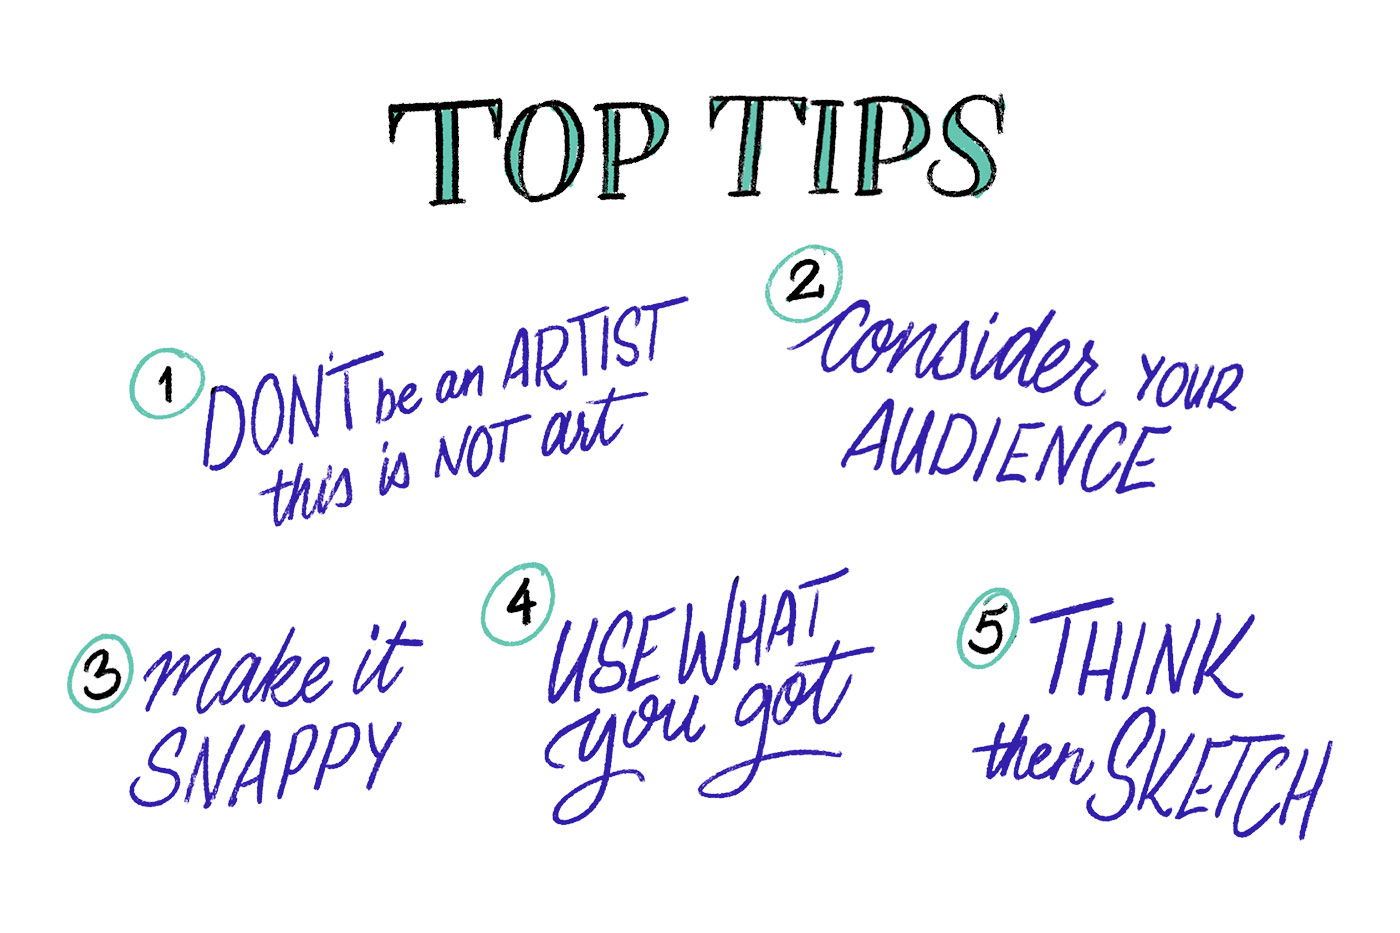 TOP TIPS
1 DON'T be an ARTIST
this is NOT art
2 Consider YOUR
AUDIENCE
3 make it
SNAPPY
4 USE WHAT
you got
5 THINK
then SKETCH